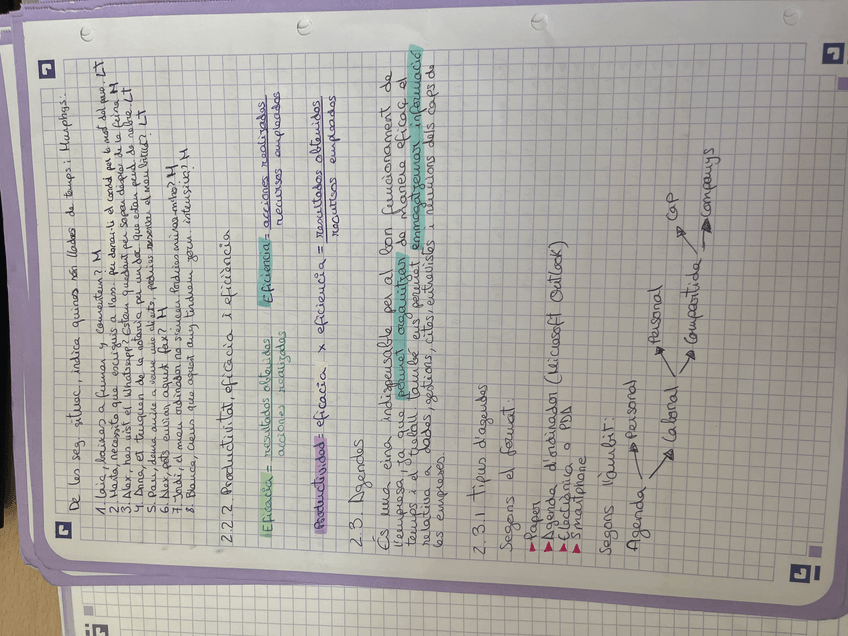 De les seg. situac, indica quines són lladres de temps i Murphys:
1. Laia, baixes a fumar y comentem? M
2. Marta, necessito que escriguis a l'Ass. per donar-li el condol per la mort del pare. LT
3. Alex, has vist el Whatsapp? Estem quedant per sopar després de la feina M
4. Anna, et truquen de la notaria per un dor que estan pend. de rebre. LT
5. Pau, demà aniré a veure uns clients, podries reservar el meu bitllet? LT
6. Alex, pots enviar aquest fax? M
7. Jordi, el meu ordinador no s'encen. Podries mirar-m'ho? M
8. Blanca, creus que aquest any tindrem jorn. intensiva? M
2.2.2 Productivitat, eficàcia i eficiència
Eficacia = resultados obtenidos
acciones realizadas
Eficiencia = acciones realizadas
recursos empleados
Productividad = eficacia x eficiencia = resultados obtenidos
recursos empleados
2.3. Agendes
És una eina indispensable per al bon funcionament de
l'empresa, ja que permet organitzar de manera eficaç el
temps i el treball també ens permet emmagatzemar informació
relativa a dades, gestions, cites, entrevistes i reunions dels caps de
les empreses.
2.3.1 Tipus d'agendes
Segons el format:
Paper
Agenda d'ordinador (Microsoft Outlook)
Electrònica o PDA
Smartphone
Segons l'àmbit:
Agenda
Personal
Laboral
Personal
Compartida
Cap
Companys